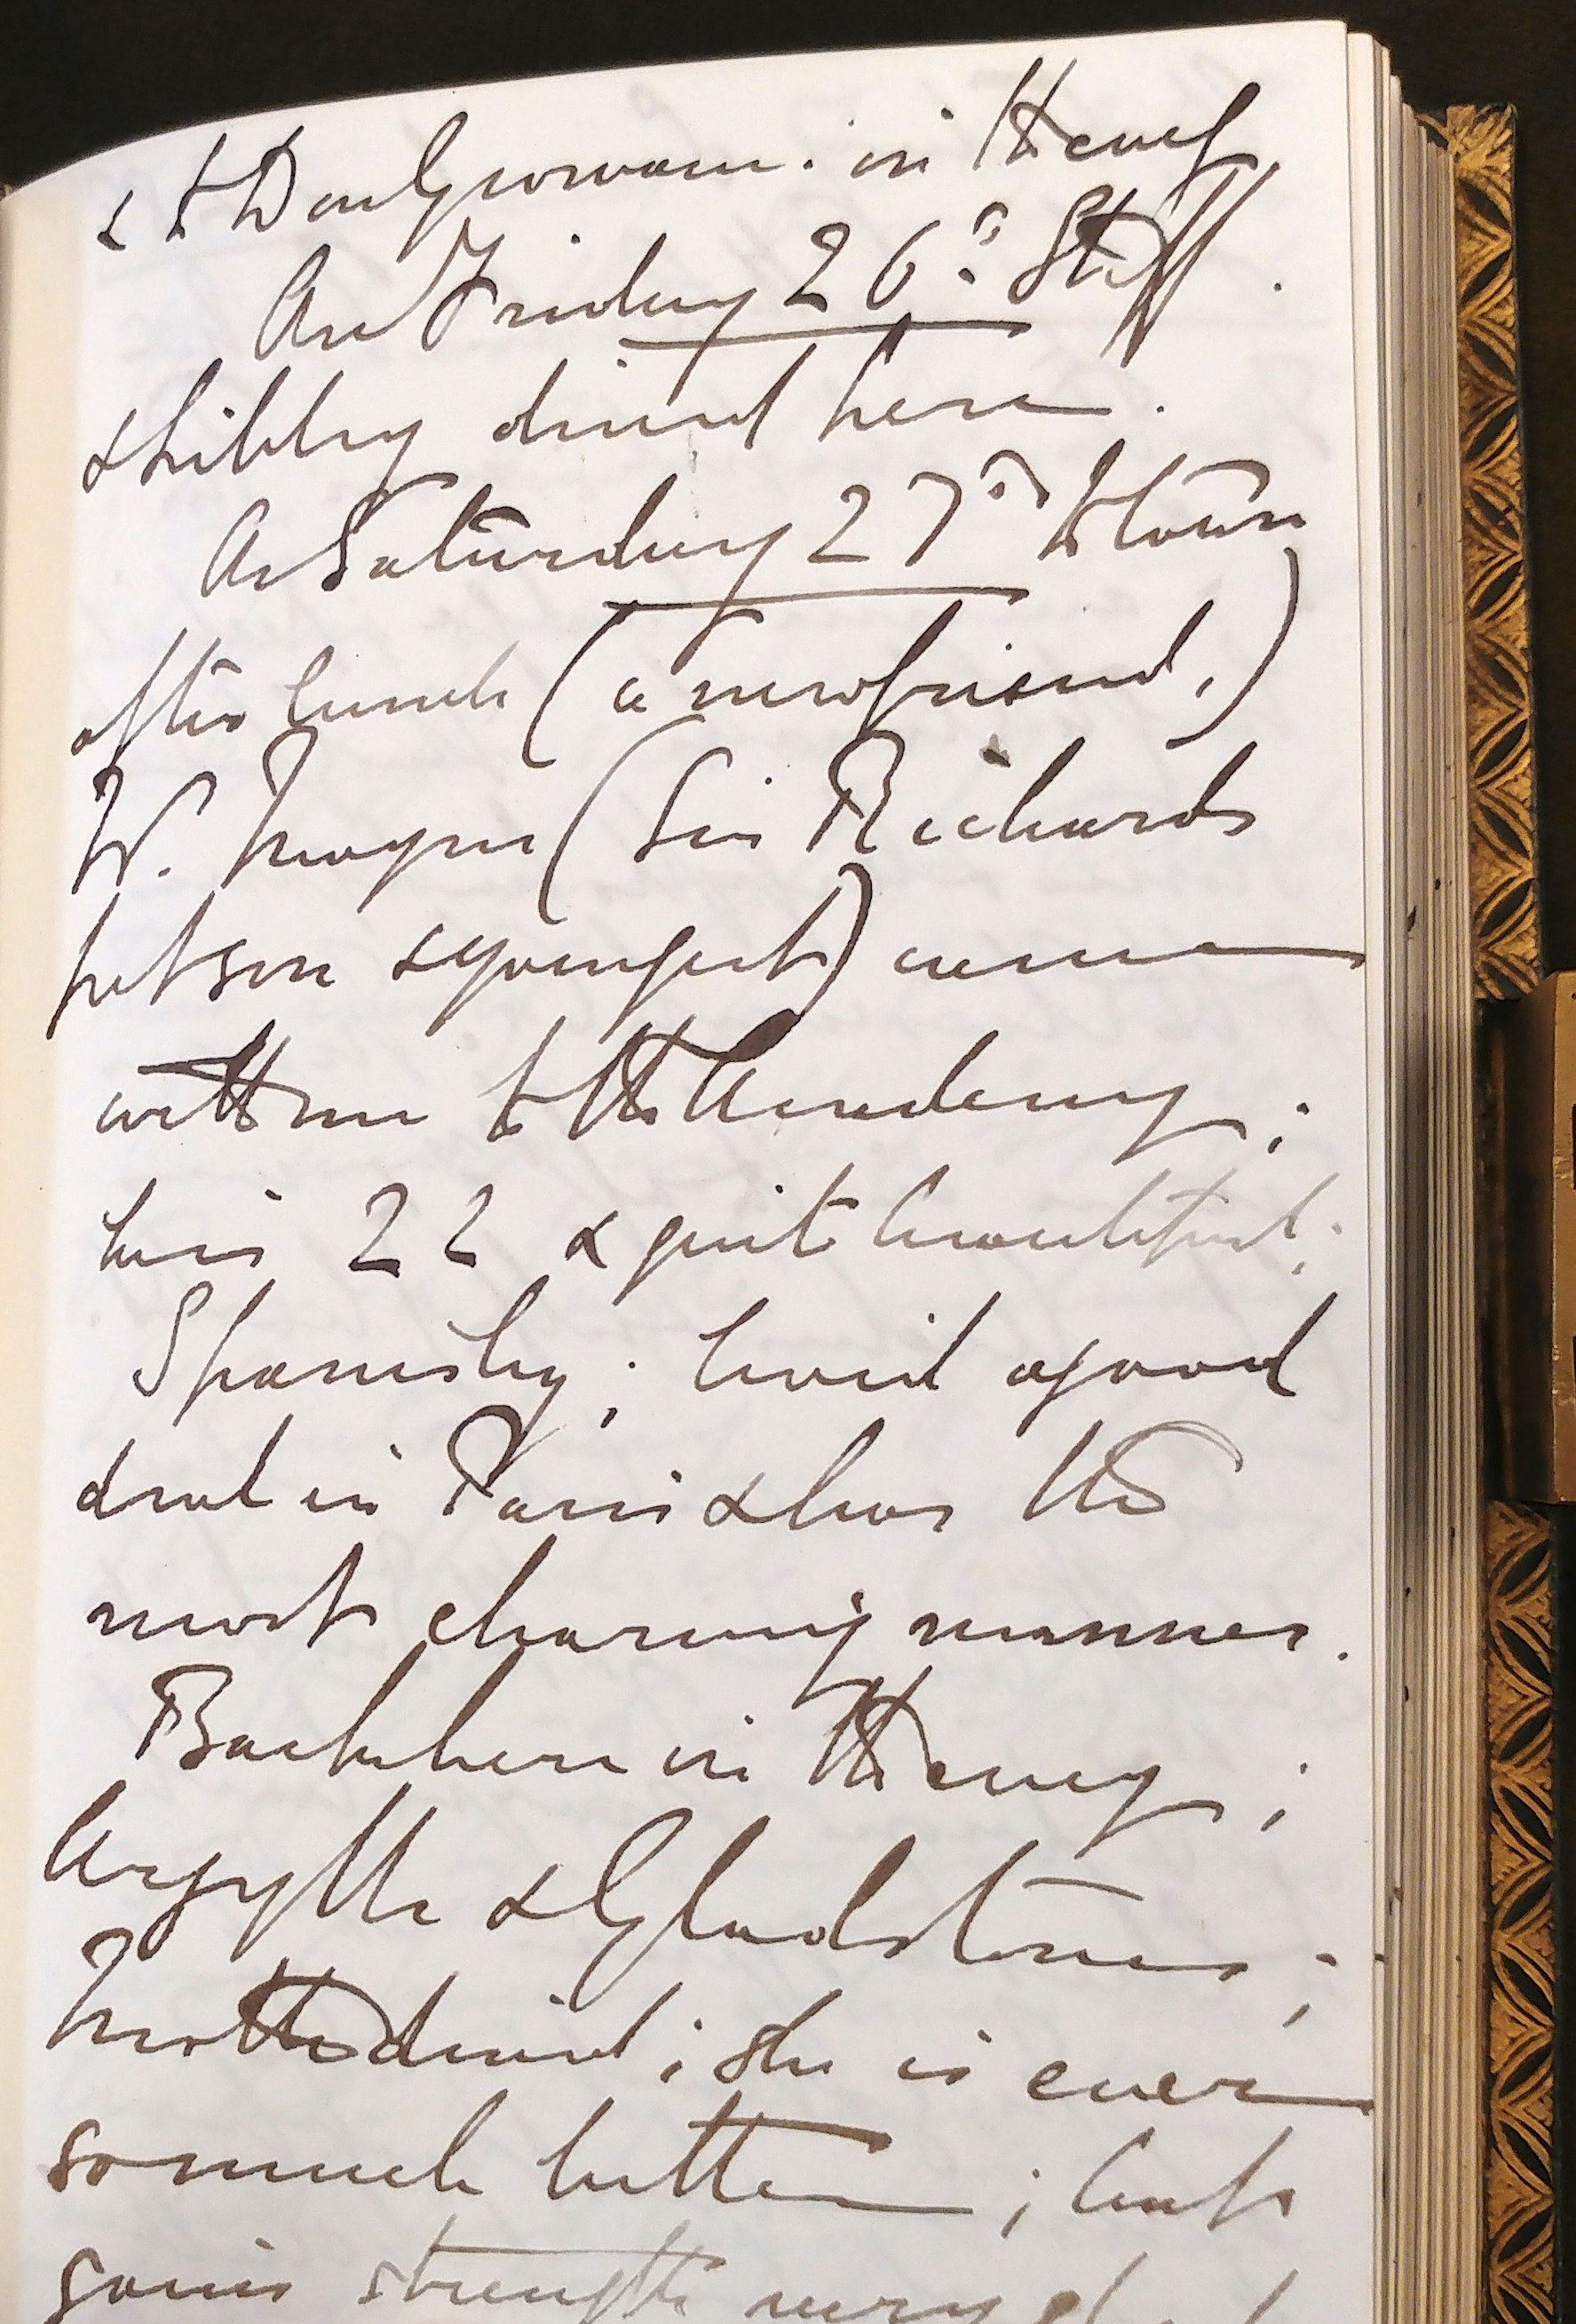 & to Dorlgrovami. in the evng
On Friday 26th: Stiff
& Libby dined here.
On Saturday 27th to town
after lunch (a new friend,)
W. Mayne (Sir Richards
pet son & youngest) came
with me to the Academy;
he is 22 & quite beautiful;
Spanishy; lived a good
deal in Paris & has the
most charming manner.
Back here in the evng;
Argylls & Gladstones;
Mother dined; she is ever
so much better; but
gains strength very